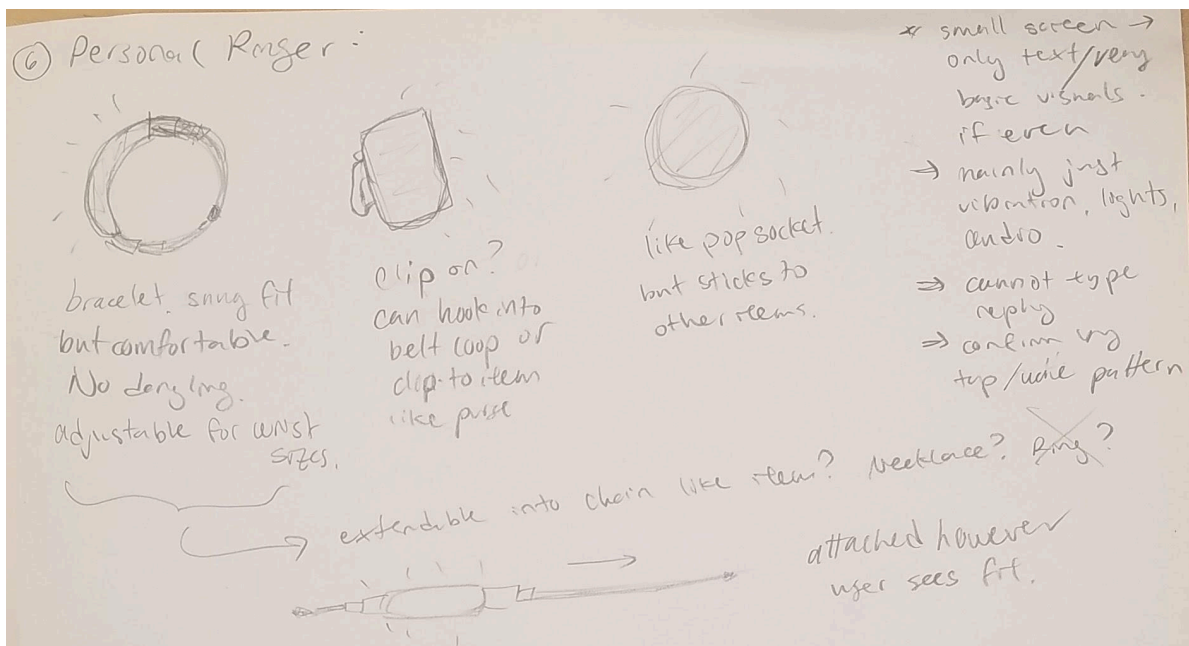 ⑥ Personal Ringer:
bracelet. snug fit
but comfortable.
No dangling.
adjustable for wrist
sizes.
clip on?
can hook into
belt loop or
clip to item
like purse
like pop socket.
but sticks to
other items.
* small screen →
only text/very
basic visuals.
if even
→ mainly just
vibration, lights,
audio.
⇒ cannot type
reply
⇒ confirm by
tap/voice pattern
extendible into chain like item? Necklace? Ring?
attached however
user sees fit.